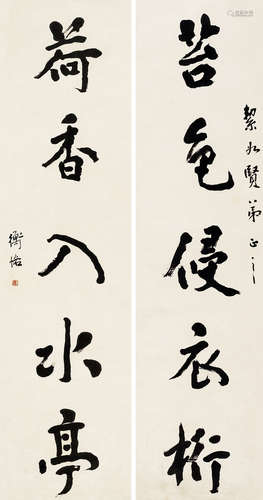 苔色侵衣桁
絜如賢弟正之
荷香入水亭
衡恪